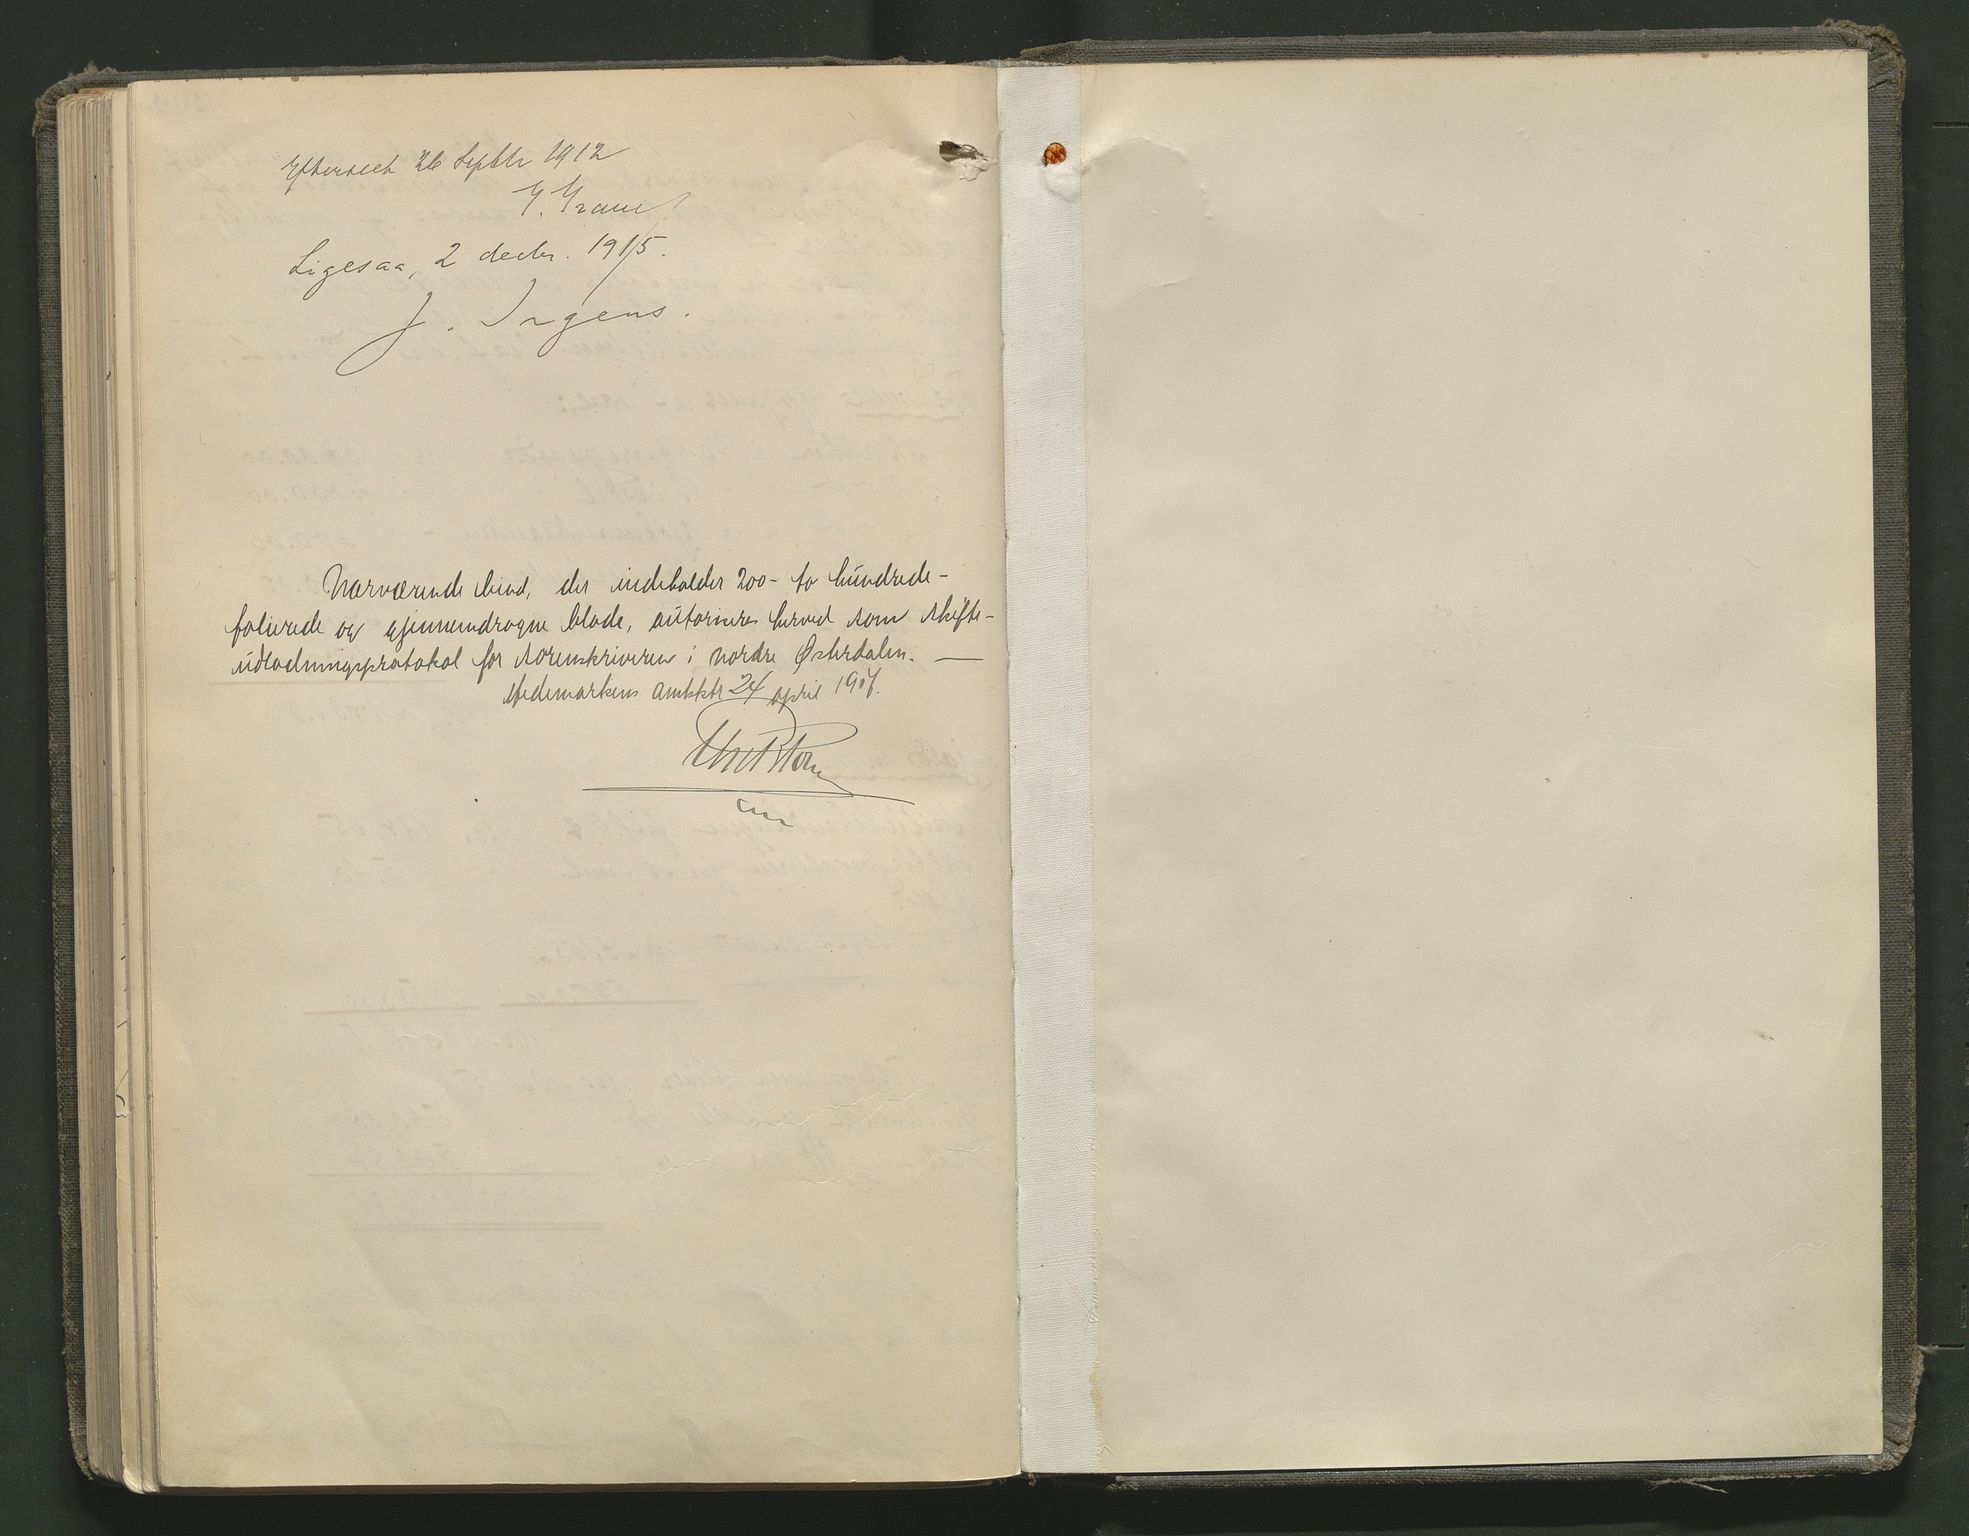 Efterseet 26 Septbr 1912
Ligesaa, 2 decbr. 1915.
J. Irgens.
Nærværende bind, der indeholder 200 - to hundrede -
folierede og gjennemdragne blade, autoriseres herved som skifte-
udlodningsprotokol for sorenskriveren i nordre Østerdalen. —
Hedemarkens amtsktr 24 april 1907.